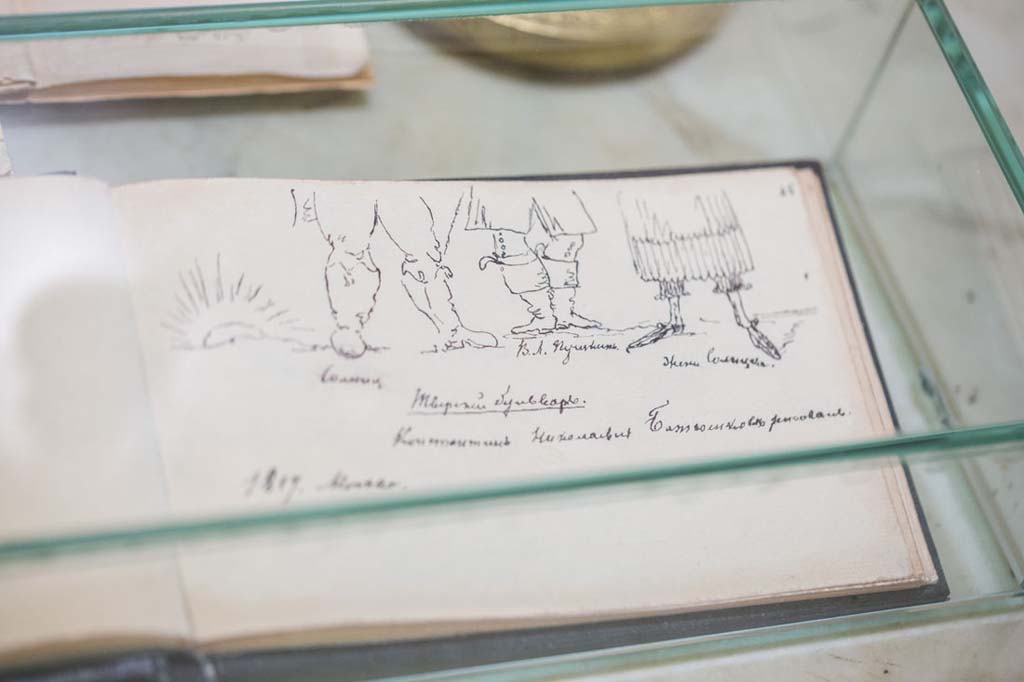 В. Л. Пушкинъ.
Жена Солнцева.
Тверской бульваръ.
Константинъ Николаевичъ Батюшковъ рисовалъ.
Москва.